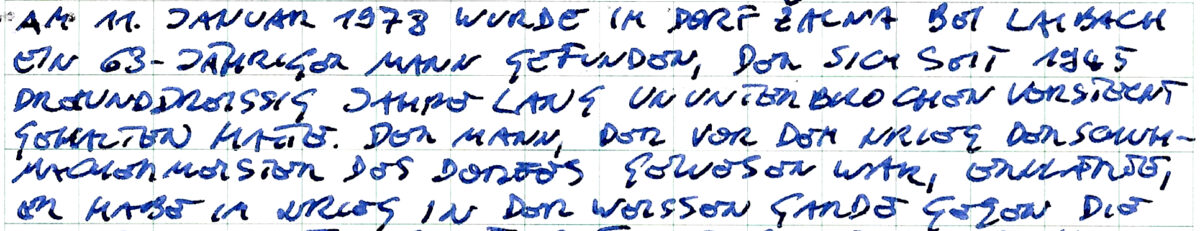 AM 11. JANUAR 1978 WURDE IM DORF ŽALNA BEI LAIBACH
EIN 63-JÄHRIGER MANN GEFUNDEN, DER SICH SEIT 1945
DREIUNDDREISSIG JAHRE LANG UNUNTERBROCHEN VERSTECKT
GEHALTEN HATTE. DER MANN, DER VOR DEM KRIEG DER SCHUH-
MACHERMEISTER DES DORFES GEWESEN WAR, ERKLÄRTE,
ER HABE IM KRIEG IN DER WEISSEN GARDE GEGEN DIE